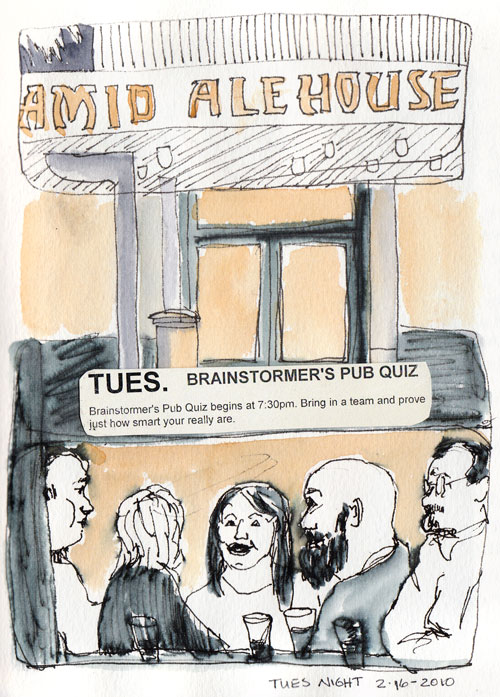 AMID ALEHOUSE
TUES. BRAINSTORMER'S PUB QUIZ
Brainstormer's Pub Quiz begins at 7:30pm. Bring in a team and prove
just how smart your really are.
TUES NIGHT 2-16-2010